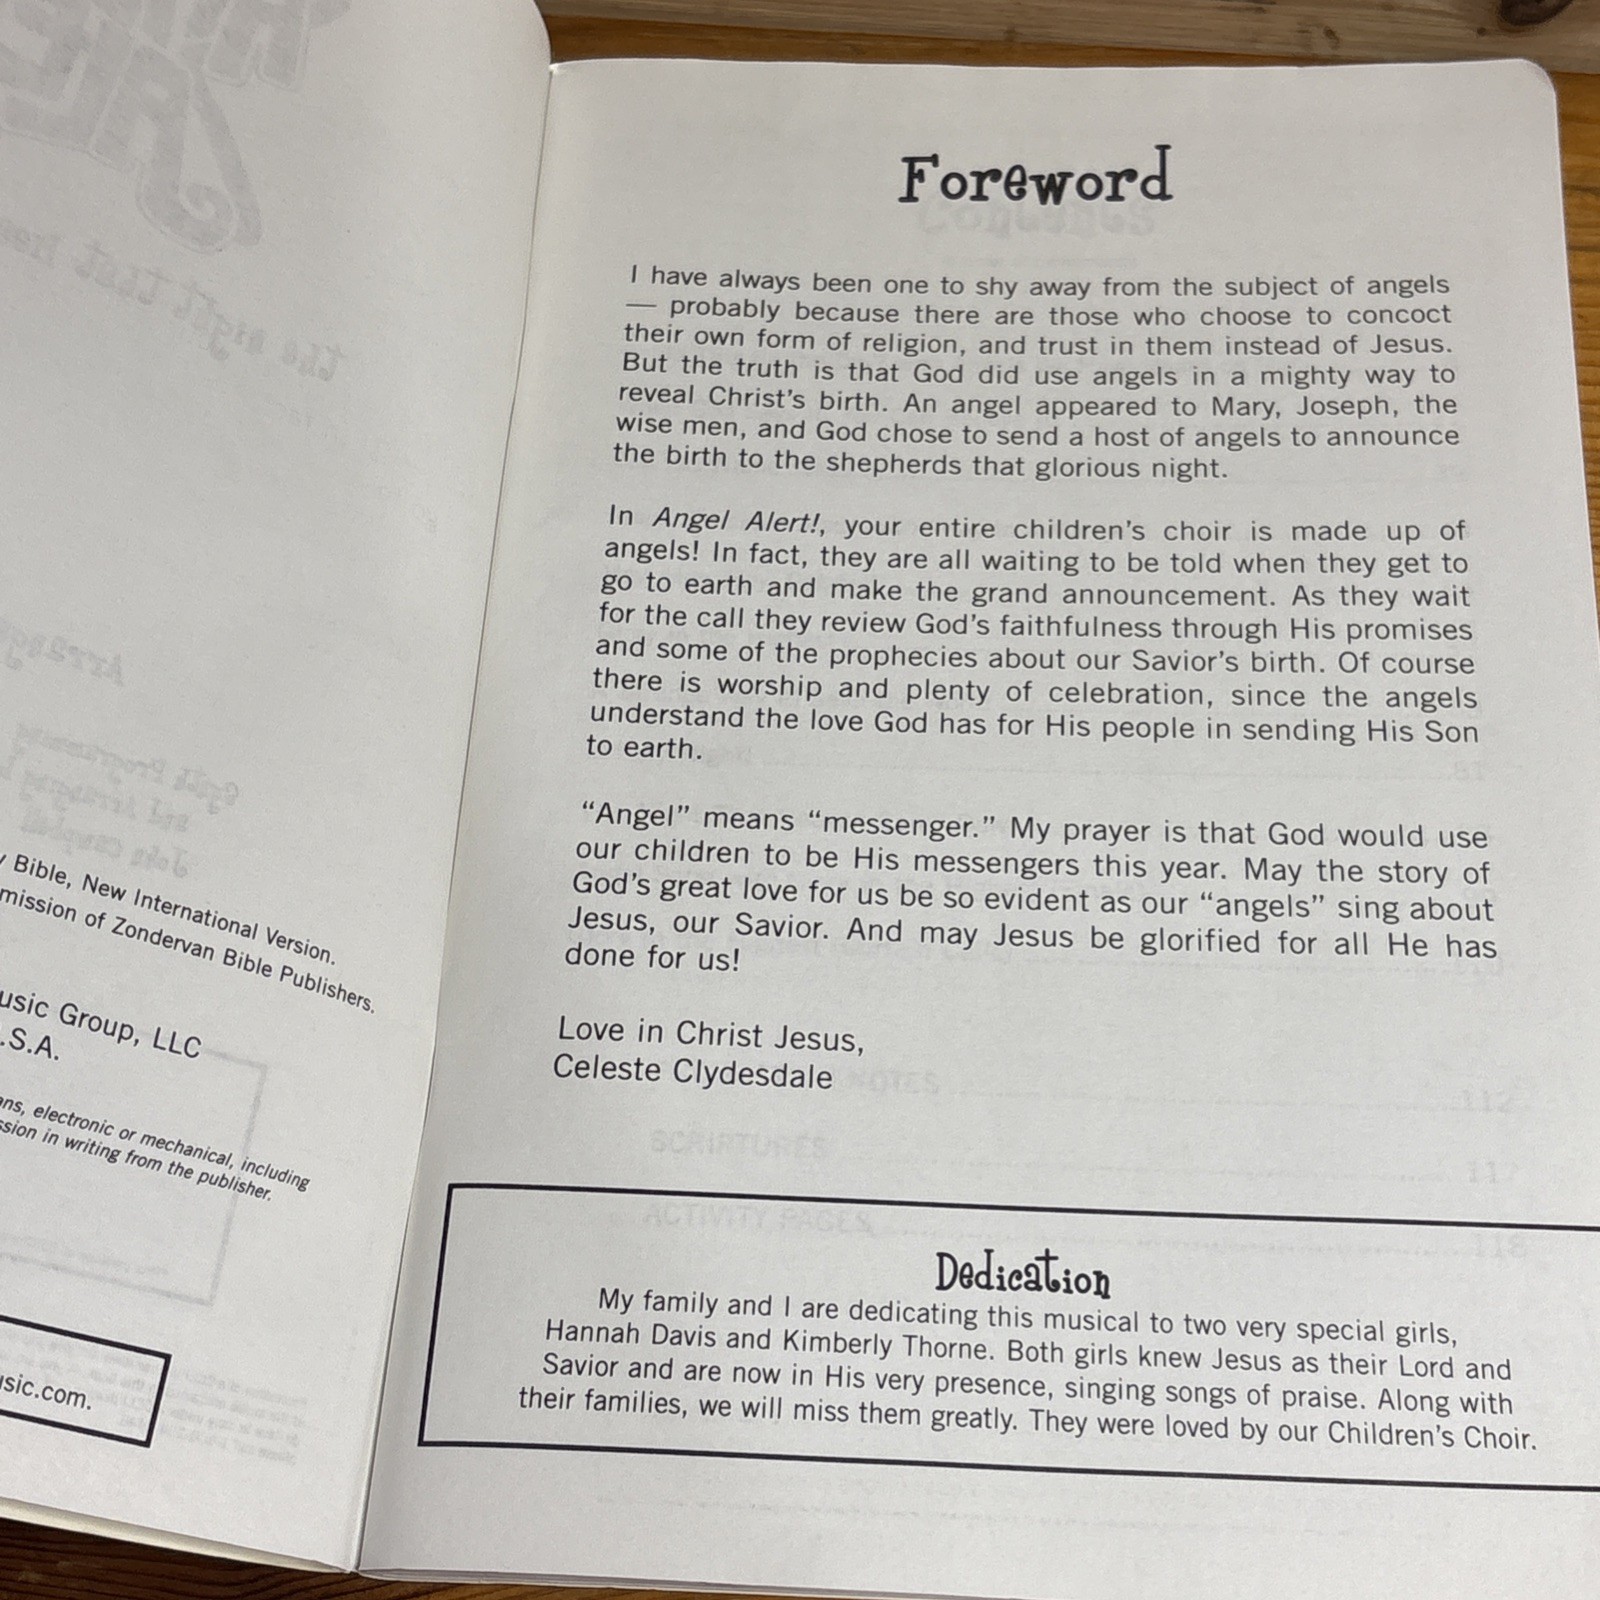 Bible, New International Version.
mission of Zondervan Bible Publishers.
Music Group, LLC
.S.A.
electronic or mechanical, including
in writing from the publisher.
sic.com.
Foreword
I have always been one to shy away from the subject of angels
— probably because there are those who choose to concoct
their own form of religion, and trust in them instead of Jesus.
But the truth is that God did use angels in a mighty way to
reveal Christ's birth. An angel appeared to Mary, Joseph, the
wise men, and God chose to send a host of angels to announce
the birth to the shepherds that glorious night.
In Angel Alert!, your entire children's choir is made up of
angels! In fact, they are all waiting to be told when they get to
go to earth and make the grand announcement. As they wait
for the call they review God's faithfulness through His promises
and some of the prophecies about our Savior's birth. Of course
there is worship and plenty of celebration, since the angels
understand the love God has for His people in sending His Son
to earth.
“Angel” means “messenger.” My prayer is that God would use
our children to be His messengers this year. May the story of
God's great love for us be so evident as our “angels” sing about
Jesus, our Savior. And may Jesus be glorified for all He has
done for us!
Love in Christ Jesus,
Celeste Clydesdale
Dedication
My family and I are dedicating this musical to two very special girls,
Hannah Davis and Kimberly Thorne. Both girls knew Jesus as their Lord and
Savior and are now in His very presence, singing songs of praise. Along with
their families, we will miss them greatly. They were loved by our Children's Choir.